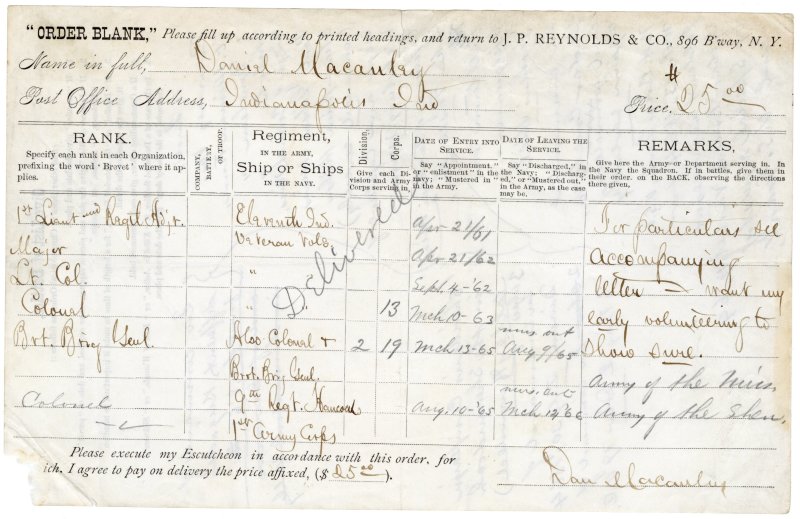 "ORDER BLANK," Please fill up according to printed headings, and return to J. P. REYNOLDS & CO., 896 B'way, N. Y.
Name in full, Daniel Macauley
Post Office Address, Indianapolis Ind Price, $25 00
RANK.
Specify each rank in each Organization, prefixing the word 'Brevet' where it applies.
COMPANY, BATTERY, OR TROOP.
Regiment,
IN THE ARMY,
Ship or Ships
IN THE NAVY.
Division.
Corps.
Give each Division and Army Corps serving in,
DATE OF ENTRY INTO SERVICE.
Say "Appointment," or "enlistment" in the navy; "Mustered in" in the Army.
DATE OF LEAVING THE SERVICE.
Say "Discharged," in the Navy; "Discharged," or "Mustered out," in the Army, as the case may be.
REMARKS,
Give here the Army or Department serving in. In the Navy the Squadron. If in battles, give them in their order, on the BACK, observing the directions there given,
1st Lieut and Regtl Adjt. Eleventh Ind. Apr 21/61
Major Veteran Vols. Apr 21/62
Lt. Col. " Sept. 4-'62
Colonel " 13 Mch 10-63
Brt. Brig Genl. Also Colonel & 2 19 Mch 13-65 mus. out Aug 9/65
Brvt. Brig Genl.
Colonel 9th Regt. Hancock Aug. 10-'65 mus. out Mch 12/66
1st Army Corps
Delivered
For particulars see
accompanying
letter — want my
early volunteering to
show sure.
Army of the Miss.
Army of the Shen.
Please execute my Escutcheon in accordance with this order, for
ich, I agree to pay on delivery the price affixed, ($25 00).
Dan Macauley